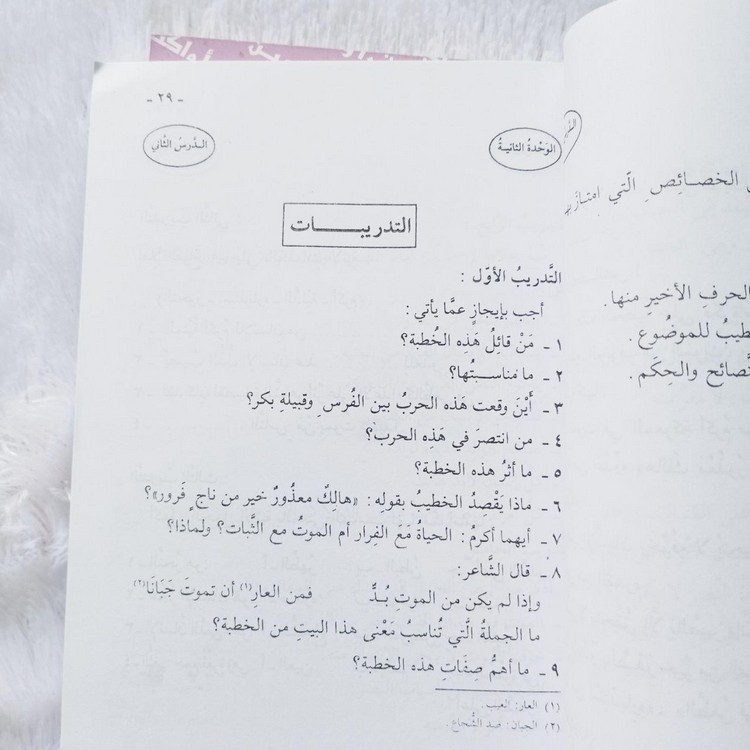 - ٢٩ -
الوَحْدةُ الثانيةُ
الدرسُ الثَّاني
التدريبــــات
التَّدريبُ الأوّل :
أجب بإيجازٍ عمَّا يأتي :
١ ـ مَنْ قائِلُ هَذِه الخُطبة؟
٢ ـ ما مَناسبتُها؟
٣ ـ أيْنَ وقعت هَذه الحربُ بين الفُرسِ وقبيلةِ بكر؟
٤ ـ من انتصرَ في هَذِه الحرب؟
٥ ـ ما أثرُ هذه الخطبة؟
٦ ـ ماذا يَقْصِدُ الخطيبُ بقولِه : «هالِكٌ معذُورٌ خير من ناجٍ فَرور»؟
٧ ـ أيهما أكرمُ : الحياةُ مَعَ الفِرار أم الموتُ مع الثَّبات؟ ولماذا؟
٨ ـ قال الشَّاعر:
وإذا لم يكن من الموتِ بُـدٌّ فمن العارِ(١) أن تموتَ جَبَانَا(٢)
ما الجملةُ الَّتي تُناسبُ مَعْنى هذا البيتِ من الخطبة؟
٩ ـ ما أهمُّ صِفَاتِ هذه الخطبة؟
(١) العار: العيب.
(٢) الجبان: ضد الشُّجاع.
الخصـائِصِ الَّتي امتـاز
الحرفِ الأخيرِ منها.
للموضُوع.
والحِكَم.